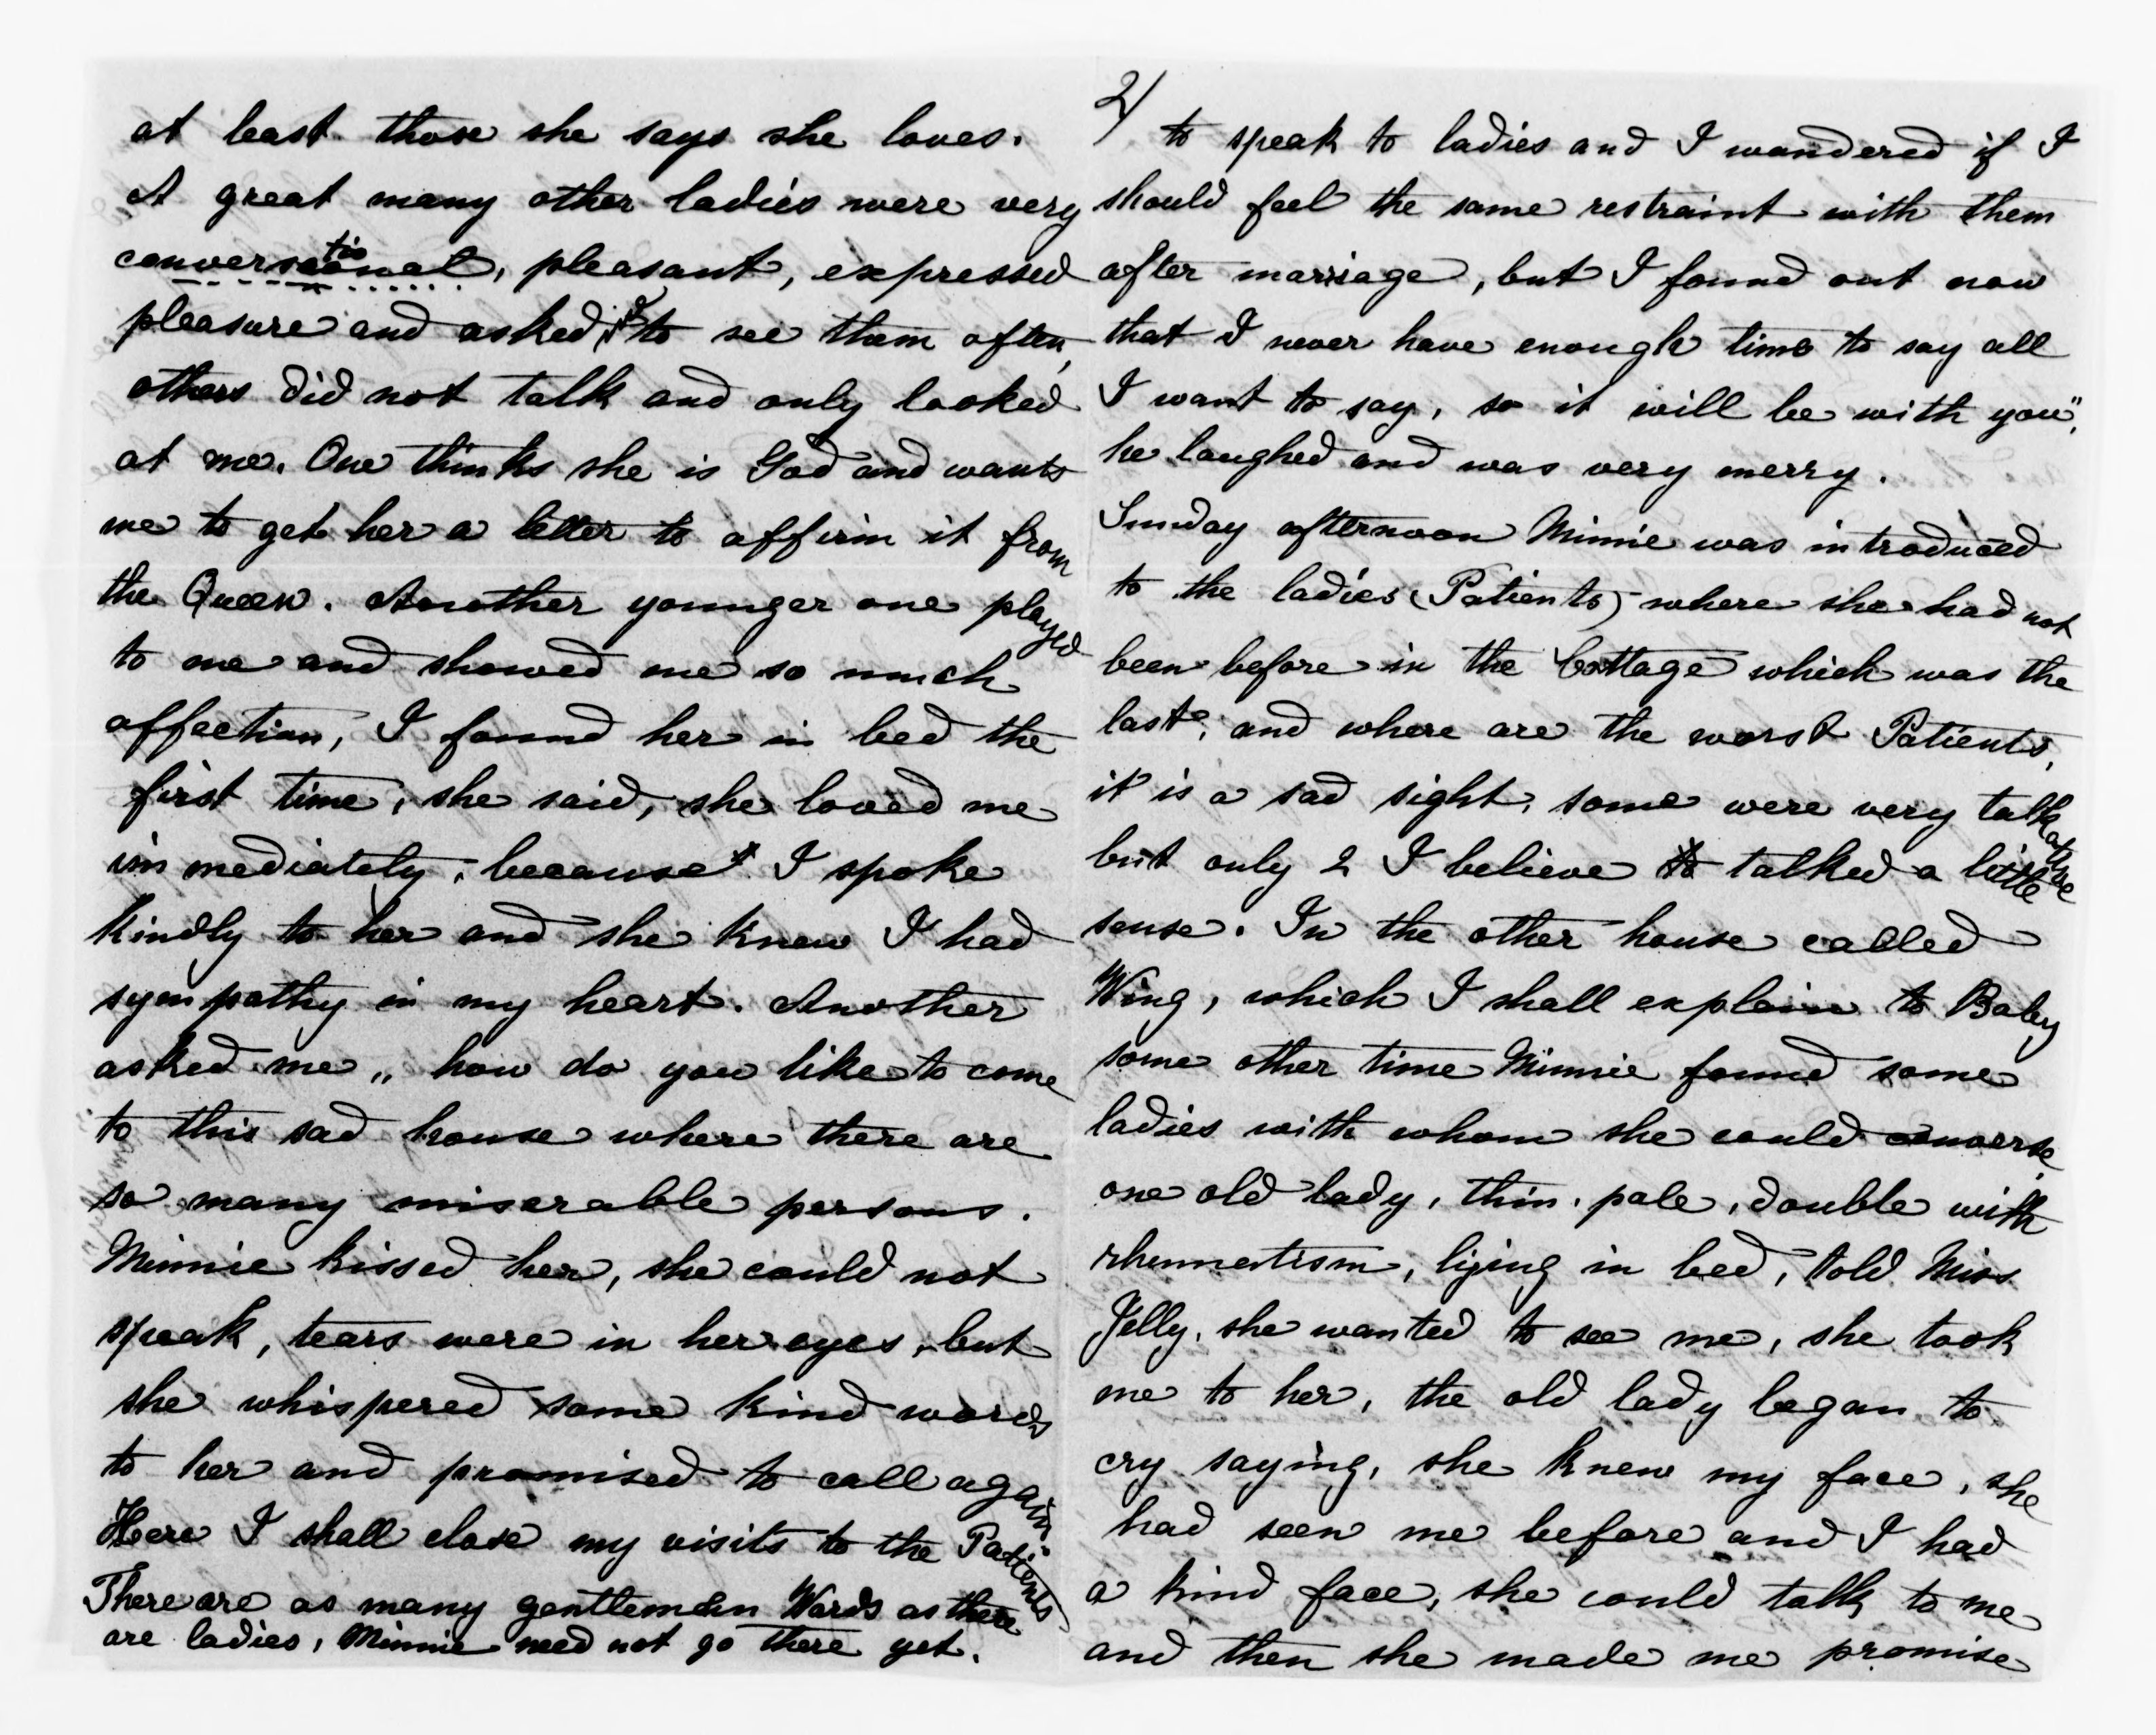 at least those she says she loves.
A great many other ladies were very
conversational, pleasant, expressed
pleasure and asked, I to see them often,
others did not talk and only looked
at me. One thinks she is God and wants
me to get her a letter to affirm it from
the Queen. Another younger one played
to me and showed me so much
affection, I found her in bed the
first time, she said, she loved me
immediately, because I spoke
kindly to her and she knew I had
sympathy in my heart. Another
asked me „ how do you like to come
to this sad house where there are
so many miserable persons.
Minnie kissed her, she could not
speak, tears were in her eyes, but
she whispered some kind words
to her and promised to call again.
Here I shall close my visits to the Patients
There are as many gentlemen Wards as there
are ladies, Minnie need not go there yet.
2/
to speak to ladies and I wandered if I
should feel the same restraint with them
after marriage, but I found out now
that I never have enough time to say all
I want to say, so it will be with you",
he laughed and was very merry.
Sunday afternoon Minnie was introduced
to the ladies (Patients) where she had not
been before in the Cottage which was the
last, and where are the worst Patients,
it is a sad sight, some were very talkative
but only 2 I believe talked a little
sense. In the other house called
Wing, which I shall explain to Baby
some other time Minnie found some
ladies with whom she could converse,
one old lady, thin, pale, double with
rheumatism, lijing in bed, told Miss
Jelly, she wanted to see me, she took
me to her, the old lady began to
cry saying, she knew my face, she
had seen me before and I had
a kind face, she could talk to me
and then she made me promise